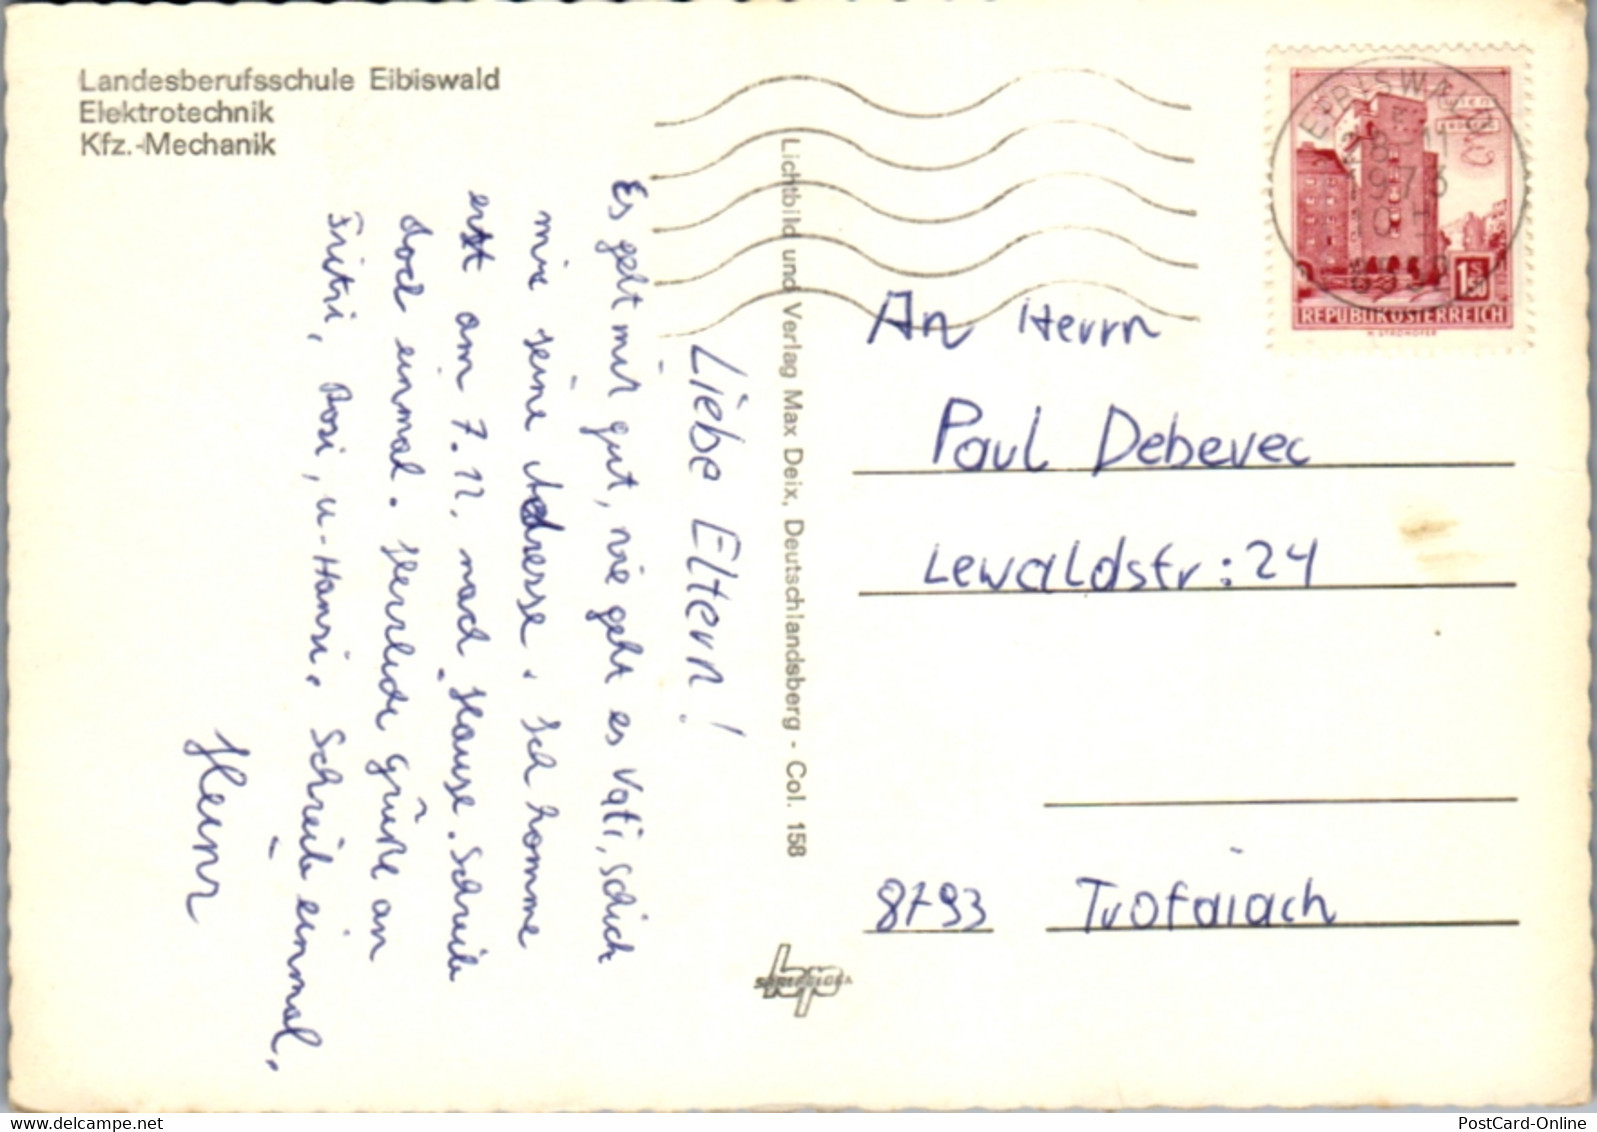 Landesberufsschule Eibiswald
Elektrotechnik
Kfz.-Mechanik
Liebe Eltern!
Es geht mir gut, wie geht es Vati, schick
mir seine Adresse. Ich komme
erst am 7.12. nach Hause. Schreib
doch einmal. Herzliche Grüße an
Fritzi, Rosi, u-Hansi. Schreib einmal.
Heinz
Lichtbild und Verlag Max Deix, Deutschlandsberg - Col. 158
EIBISWALD
1973
REPUBLIK ÖSTERREICH
An Herrn
Paul Debevec
Lewaldstr: 24
8793 Trofaiach
PostCard-Online